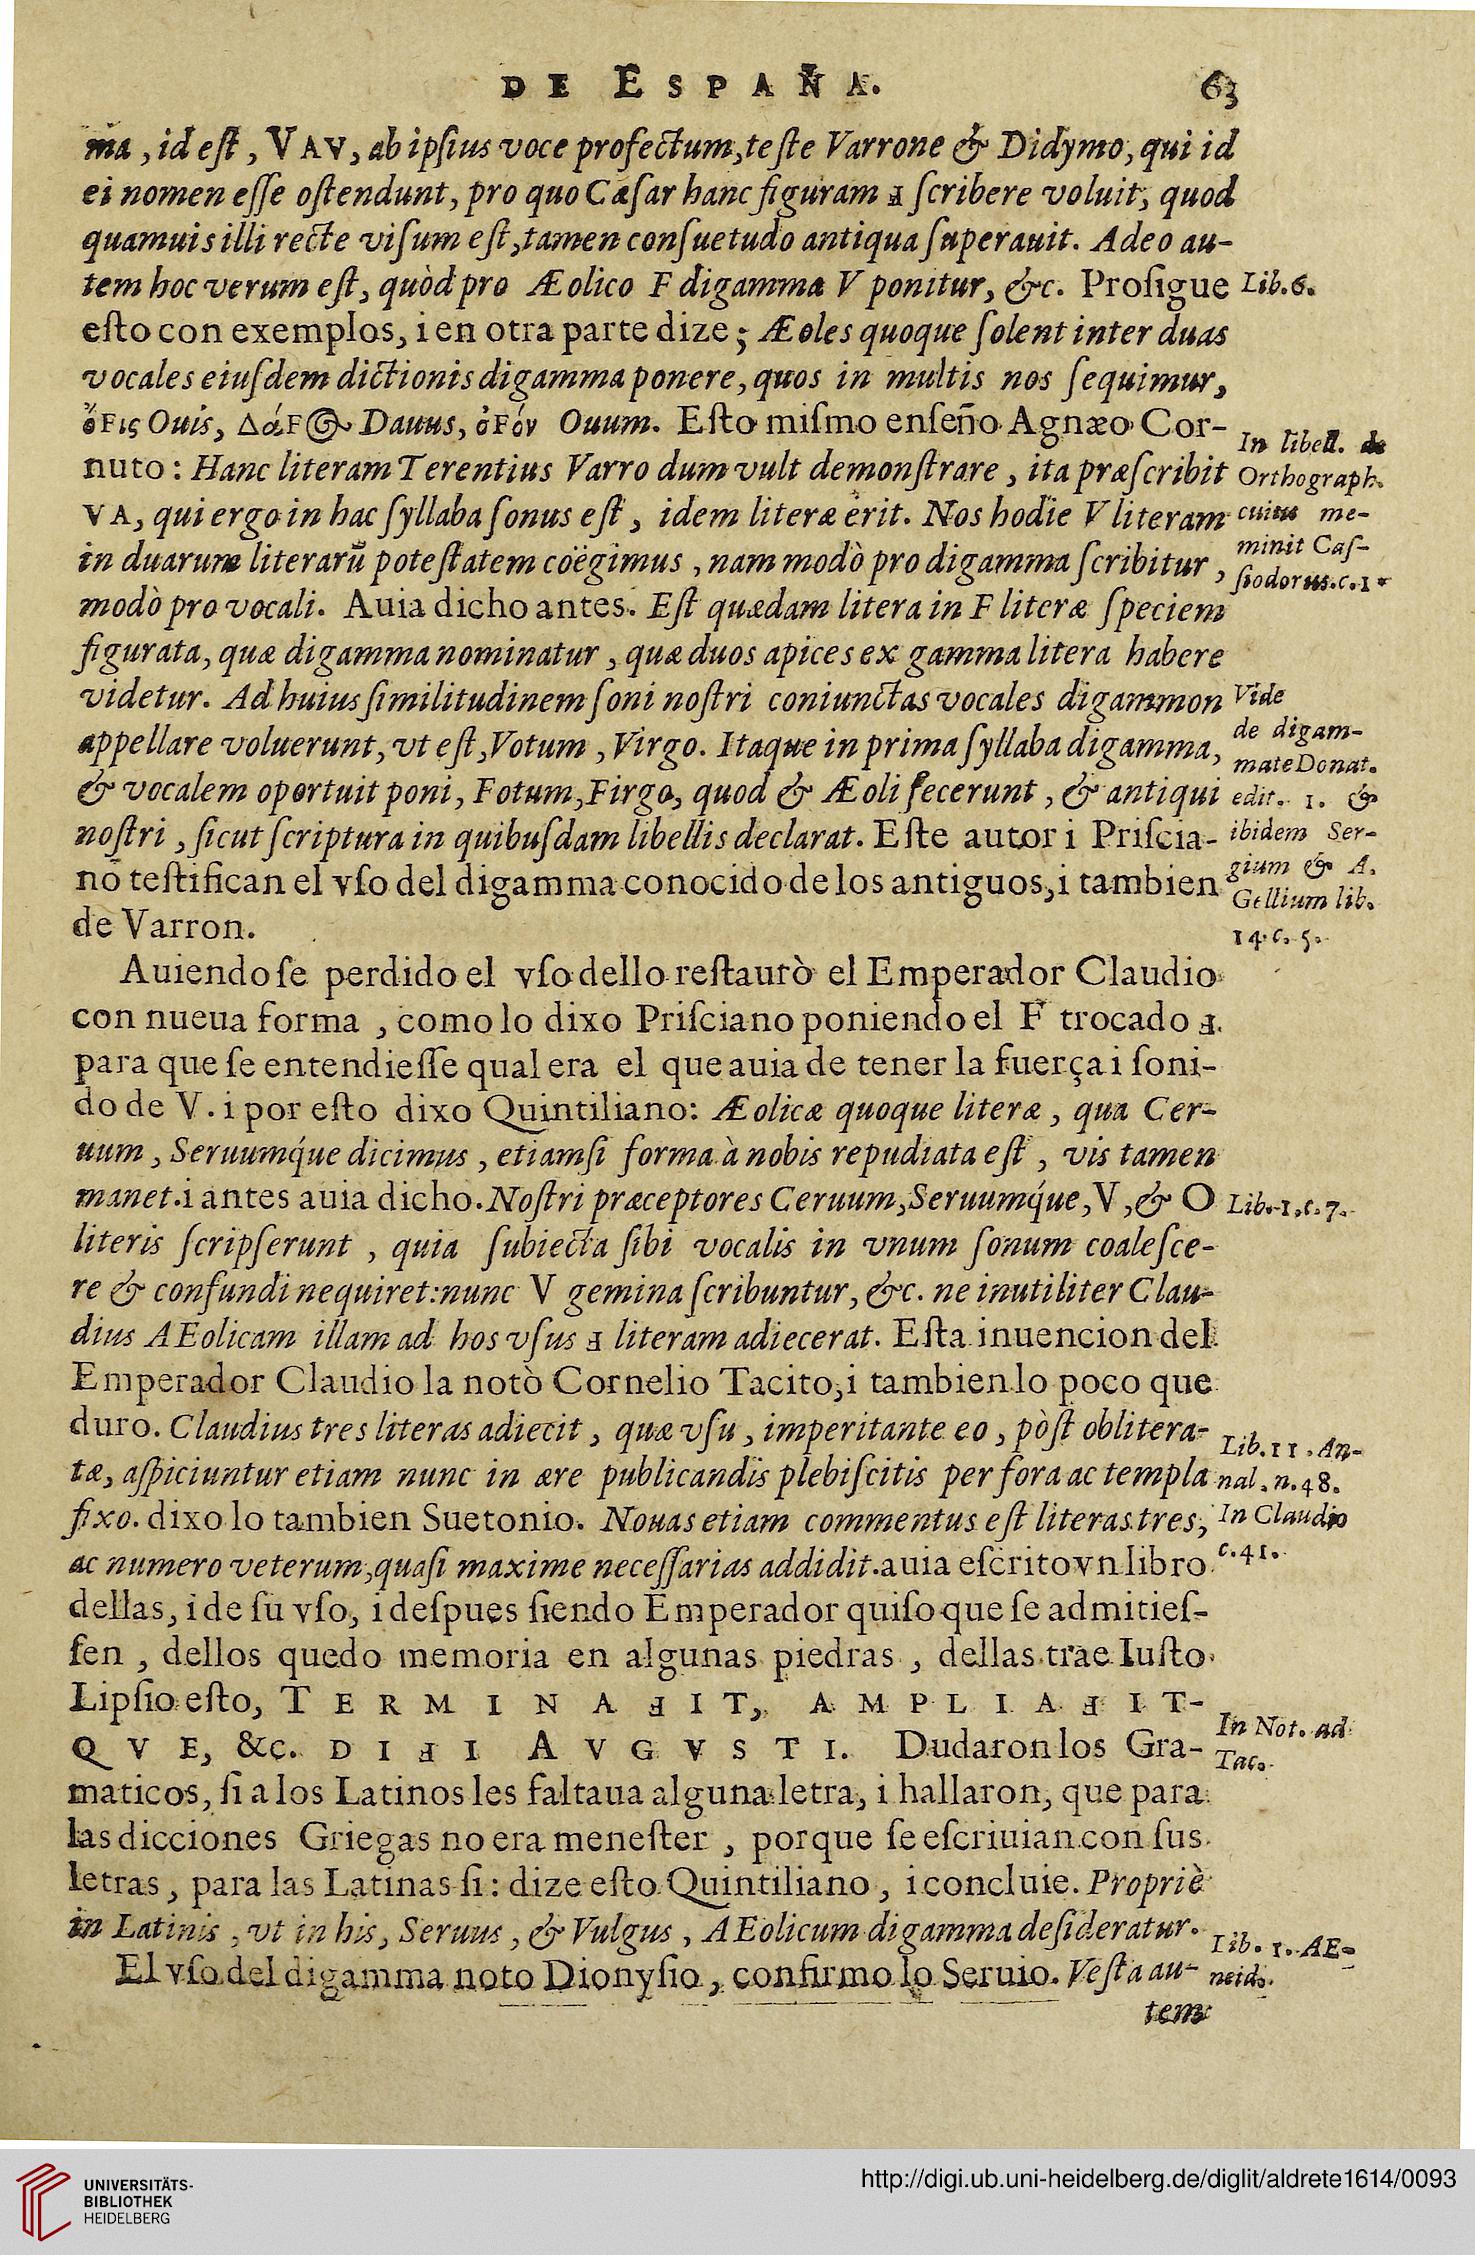 DE ESPAÑA. 63
ma, id eſt, VAV, ab ipſius voce profectum, teſte Varrone & Didymo, qui id
ei nomen eſſe oſtendunt, pro quo Cæſar hanc figuram Ⅎ ſcribere voluit, quod
quamuis illi recte viſum eſt, tamen conſuetudo antiqua ſuperauit. Adeo au-
tem hoc verum eſt, quòd pro Æolico F digamma V ponitur, &c. Proſigue
Lib. 6.
eſto con exemplos, i en otra parte dize; Æoles quoque ſolent inter duas
vocales eiuſdem dictionis digamma ponere, quos in multis nos ſequimur,
ὄFις Ouis, ΔάF Dauus, ὀFόν Ouum. Eſto miſmo enſeño Agnæo Cor-
nuto: Hanc literam Terentius Varro dum vult demonſtrare, ita præſcribit
VA, qui ergo in hac ſyllaba ſonus eſt, idem literæ erit. Nos hodie V literam
in duarum literarũ poteſtatem coëgimus, nam modò pro digamma ſcribitur,
modò pro vocali. Auia dicho antes. Eſt quædam litera in F literæ ſpeciem
In libell. de
Orthograph.
cuius me-
minit Caſ-
ſiodorus. c. 1.
figurata, quæ digamma nominatur, quæ duos apices ex gamma litera habere
videtur. Ad huius ſimilitudinem ſoni noſtri coniunctas vocales digammon
appellare voluerunt, vt eſt, Votum, Virgo. Itaque in prima ſyllaba digamma,
& vocalem oportuit poni, Fotum, Firgo, quod & Æoli fecerunt, & antiqui
noſtri, ſicut ſcriptura in quibuſdam libellis declarat. Eſte autor i Priſcia-
no teſtifican el vſo del digamma conocido de los antiguos, i tambien
de Varron.
Vide
de digam-
mate Donat.
edit. 1. &
ibidem Ser-
gium & A.
Gellium lib.
14. c. 5.
Auiendoſe perdido el vſo dello reſtaurò el Emperador Claudio
con nueua forma, como lo dixo Priſciano poniendo el F trocado Ⅎ.
para que ſe entendieſſe qual era el que auia de tener la fuerça i ſoni-
do de V. i por eſto dixo Quintiliano: Æolicæ quoque literæ, qua Cer-
uum, Seruumq́ue dicimus, etiamſi forma à nobis repudiata eſt, vis tamen
manet. i antes auia dicho. Noſtri præceptores Ceruum, Seruumq́ue, V, & O
Lib. 1. c. 7.
literis ſcripſerunt, quia ſubiecta ſibi vocalis in vnum ſonum coaleſce-
re & confundi nequiret: nunc V gemina ſcribuntur, &c. ne inutiliter Clau-
dius AEolicam illam ad hos vſus Ⅎ literam adiecerat. Eſta inuencion del
Emperador Claudio la notò Cornelio Tacito, i tambien lo poco que
duro. Claudius tres literas adiecit, quæ vſu, imperitante eo, pòſt oblitera-
tæ, aſpiciuntur etiam nunc in ære publicandis plebiſcitis per fora ac templa
Lib. 11. An-
nal. n. 48.
fixo. dixo lo tambien Suetonio. Nouas etiam commentus eſt literas tres,
ac numero veterum, quaſi maxime neceſſarias addidit. auia eſcrito vn libro
In Claudio
c. 41.
dellas, i de ſu vſo, i deſpues ſiendo Emperador quiſo que ſe admitieſ-
ſen, dellos quedo memoria en algunas piedras, dellas trae Iuſto
Lipſio eſto, TERMINAℲIT, AMPLIAℲIT-
QVE, &c. DIℲI AVGVSTI. Dudaron los Gra-
In Not. ad
Tac.
maticos, ſi a los Latinos les faltaua alguna letra, i hallaron, que para
las dicciones Griegas no era meneſter, porque ſe eſcriuian con ſus
letras, para las Latinas ſi: dize eſto Quintiliano, i concluie. Propriè
in Latinis, vt in his, Seruus, & Vulgus, AEolicum digamma deſideratur.
El vſo del digamma noto Dionyſio, confirmo lo Seruio. Veſta au-
Lib. 1. AE-
neid.
tem
UNIVERSITÄTS-
BIBLIOTHEK
HEIDELBERG
http://digi.ub.uni-heidelberg.de/diglit/aldrete1614/0093